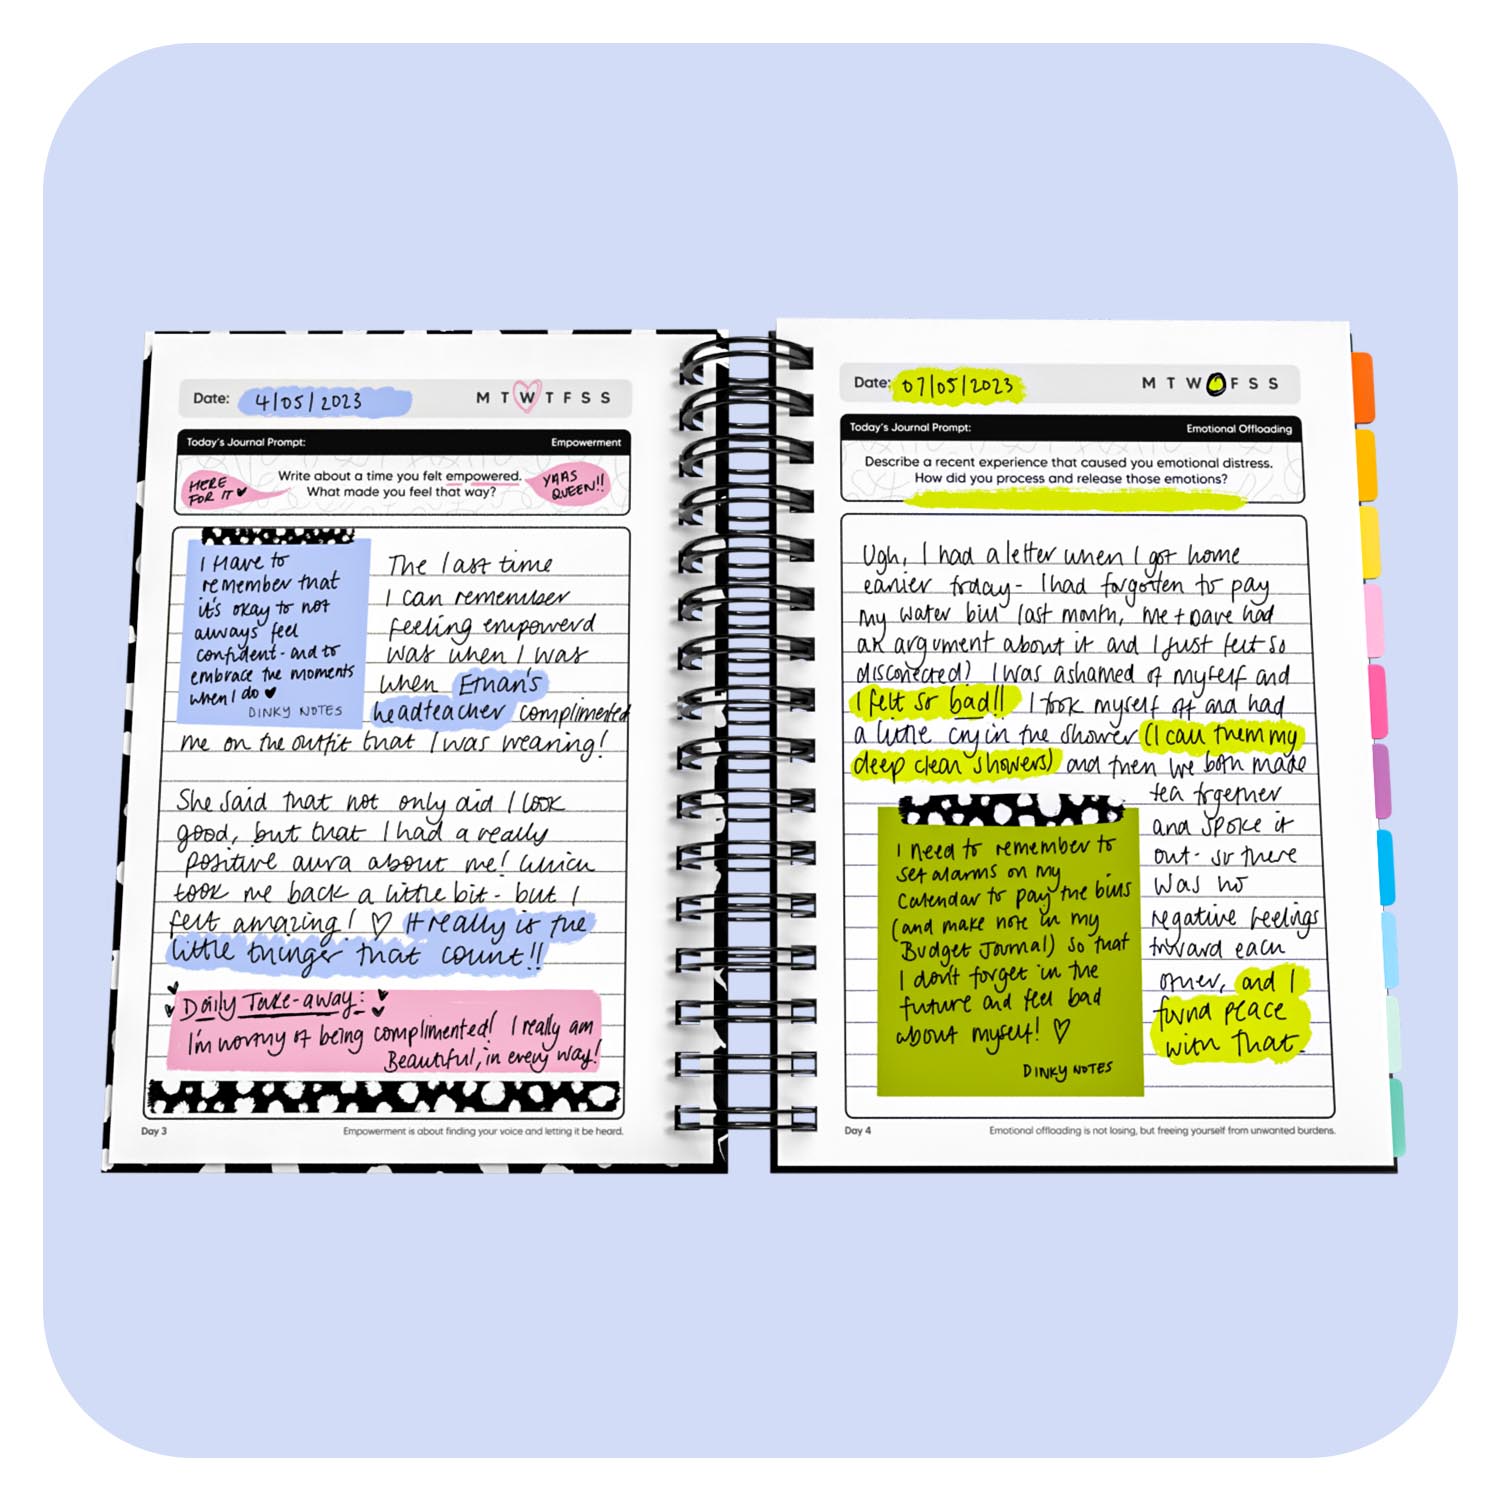 Date: 4/05/2023 M T W T F S S
Today's Journal Prompt: Empowerment
HERE FOR IT
Write about a time you felt empowered.
What made you feel that way?
YAAS QUEEN!!
I Have to
remember that
it's okay to not
always feel
confident - and to
embrace the moments
when I do ♥
DINKY NOTES
The last time
I can remember
feeling empowerd
was when I was
when Ethan's
headteacher complimented
me on the outfit that I was wearing!
She said that not only did I look
good, but that I had a really
positive aura about me! Which
took me back a little bit - but I
felt amazing! ♡ It really is the
little things that count!!
Daily Take-away:
I'm worthy of being complimented! I really am
Beautiful, in every way!
Day 3 Empowerment is about finding your voice and letting it be heard.
Date: 07/05/2023 M T W F S S
Today's Journal Prompt: Emotional Offloading
Describe a recent experience that caused you emotional distress.
How did you process and release those emotions?
Ugh, I had a letter when I got home
earlier today - I had forgotten to pay
my water bill last month, me + Dave had
an argument about it and I just felt so
disconected? I was ashamed of myself and
I felt so bad!! I took myself off and had
a little cry in the shower (I call them my
deep clean showers) and then we both made
tea together
and spoke it
out - so there
was no
negative feelings
toward each
other, and I
found peace
with that.
I need to remember to
set alarms on my
calendar to pay the bills
(and make note in my
Budget Journal) so that
I don't forget in the
future and feel bad
about myself! ♡
DINKY NOTES
Day 4 Emotional offloading is not losing, but freeing yourself from unwanted burdens.